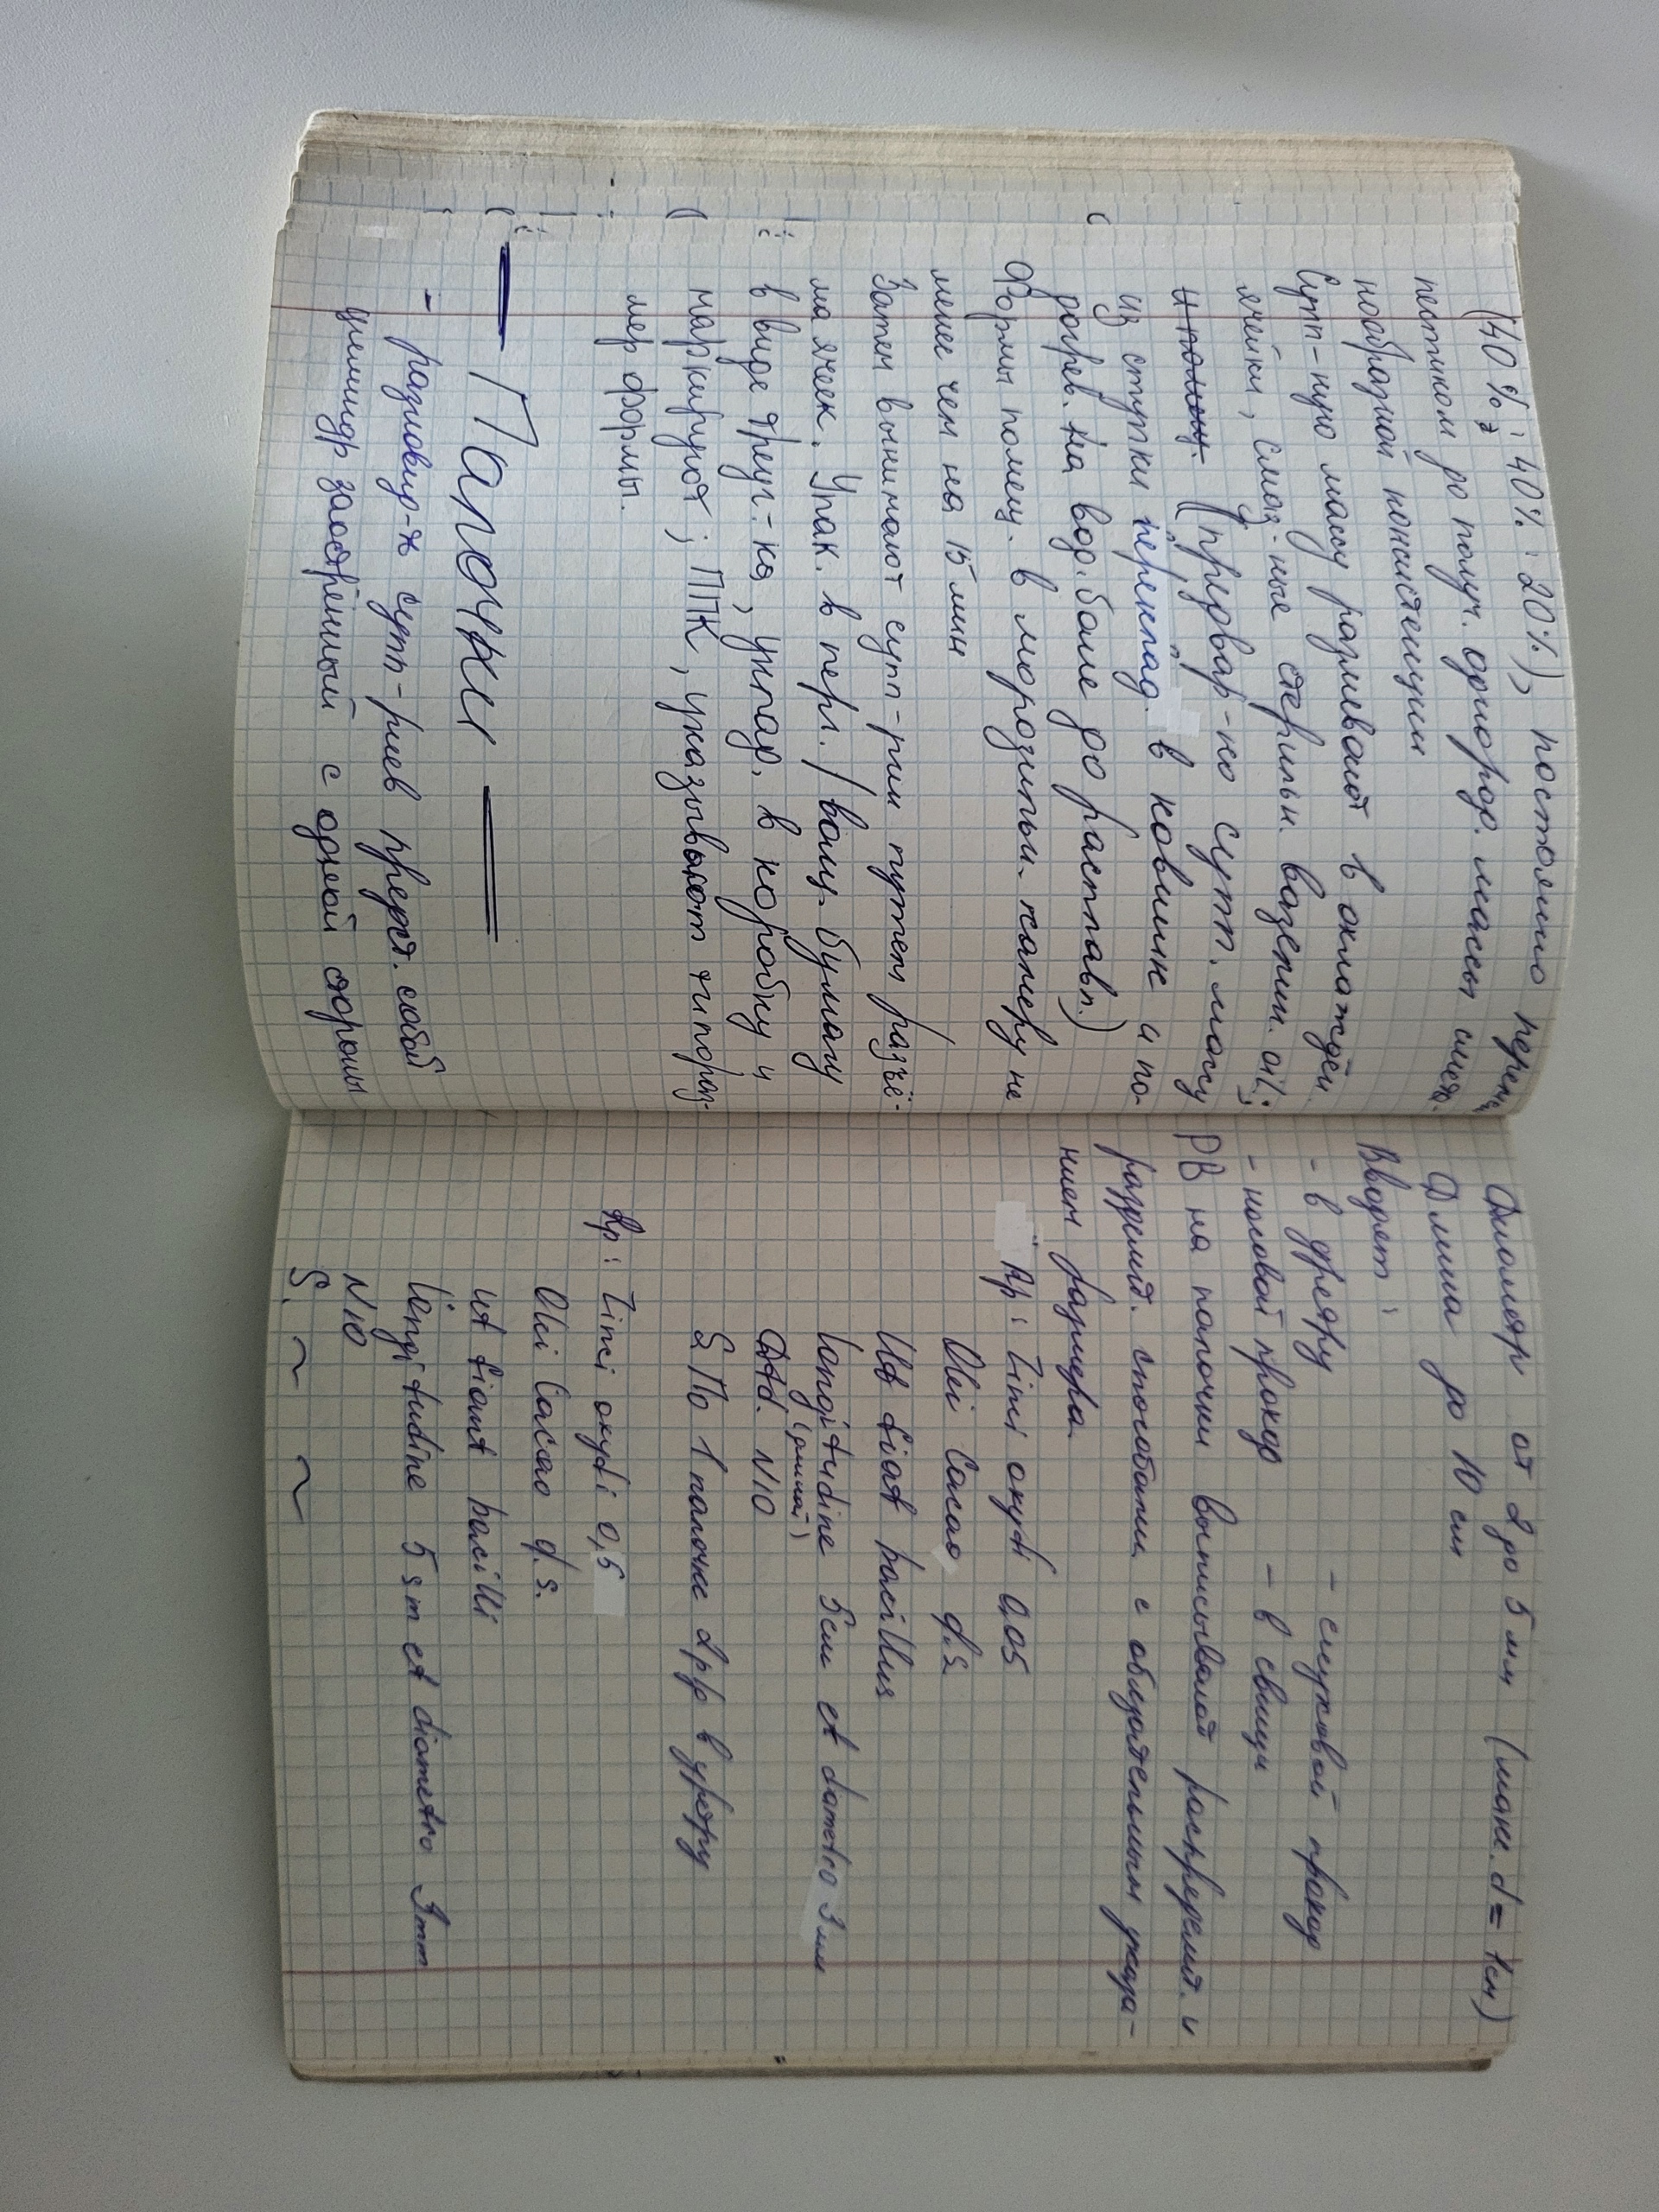 (40% : 40% : 20%), постоянно перем.
пестиком до получ. однород. массы смета-
нообразной консистенции
Супп-ную массу разливают в охлаждён.
ячейки, смаз-ные стерильн. вазелин. oil;
(предвар-но супп. массу
из ступки переклад. в ковшик и по-
догрев. на вод. бане до расплавл.)
Формы помещ. в морозильн. камеру не
менее чем на 15 мин
Затем вынимают супп-рии путем разъё-
ма ячеек. Упак. в перг./вощ. бумагу
в виде треуг-ка, уклад. в коробку и
маркируют; ППК, указывают типораз-
мер формы.
Палочки
- разновид-ть супп-риев предст. собой
цилиндр заострённый с одной стороны
Диаметр от 2 до 5 мм (макс. d = 1см)
Длина до 10 см
Вводят:
- в уретру - слуховой проход
- носовой проход - в свищи
РВ на палочки выписывают распредел. и
разделит. способами с обязательным указа-
нием размера.
Rp: Zinci oxydi 0,05
Olei Cacao q.s.
Ut fiat bacillus
longitudine 5см et dametro 3 мм
(длиной)
Dtd. N10
S. По 1 палочке 2р/д в уретру
Rp: Zinci oxydi 0,5
Olei Cacao q.s.
ut fiant bacilli
longitudine 5 sm et diametro 3mm
N10
S. ~ ~